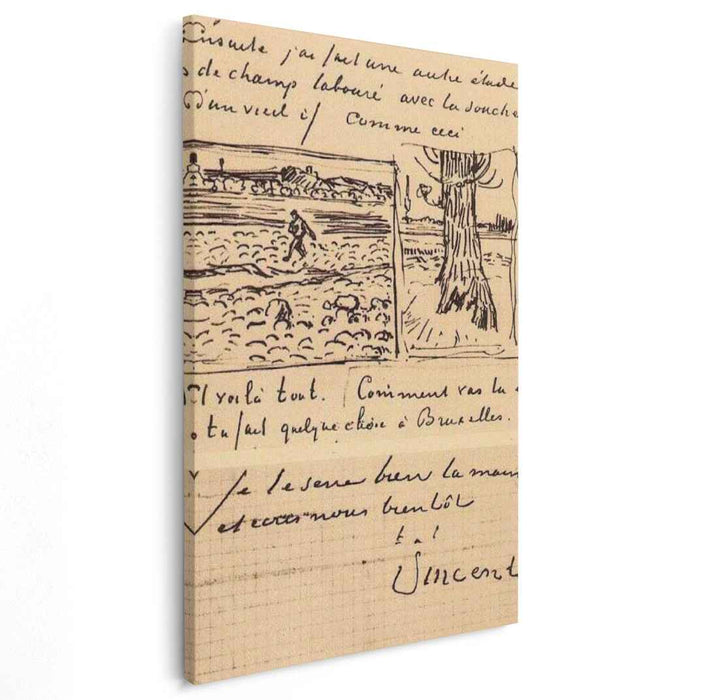 Ensuite j'ai fait une autre étude
de champ labouré avec la souche
d'un vieil if comme ceci
Et voilà tout. Comment vas tu
tu fait quelque chose à Bruxelles.
Je te serre bien la main
et nous bientôt
t. à t.
Vincent